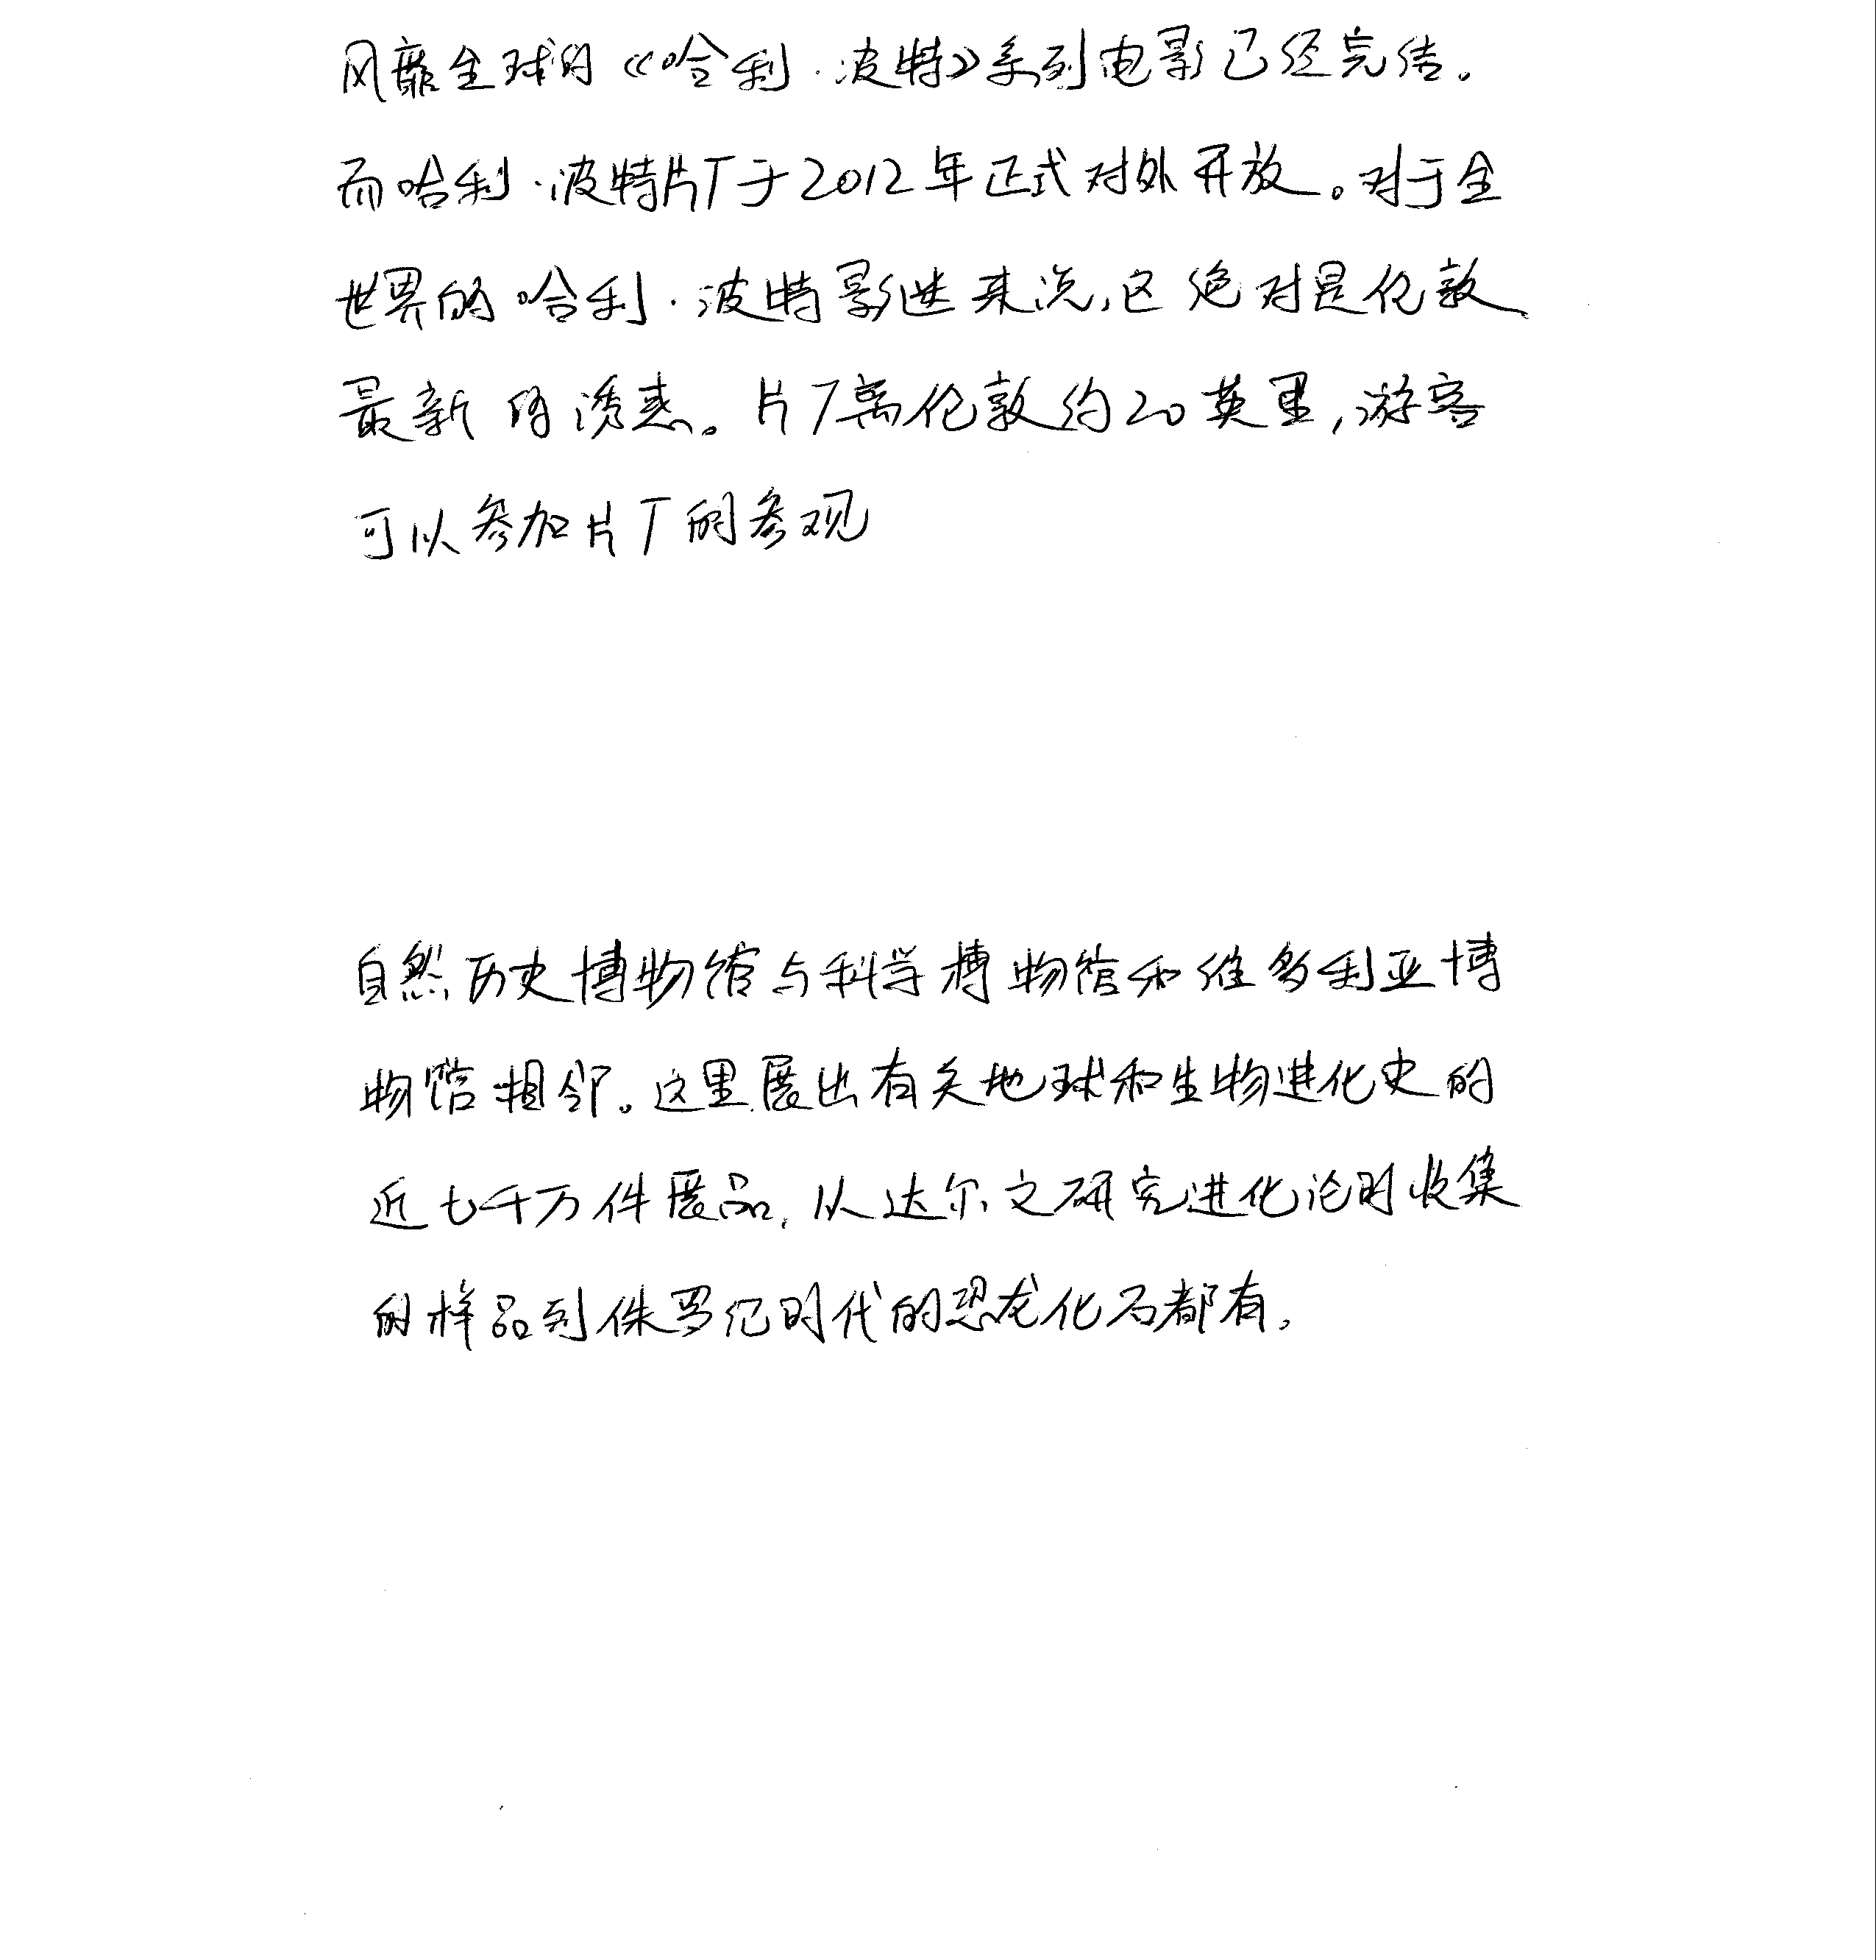 风靡全球的《哈利·波特》系列电影已经完结。
而哈利·波特片厂于2012年正式对外开放。对于全
世界的哈利·波特影迷来说,这绝对是伦敦
最新的诱惑。片厂离伦敦约20英里,游客
可以参加片厂的参观
自然历史博物馆与科学博物馆和维多利亚博
物馆相邻。这里展出有关地球和生物进化史的
近七千万件展品,从达尔文研究进化论时收集
的样品到侏罗纪时代的恐龙化石都有。